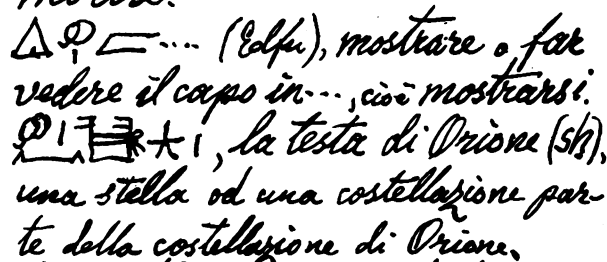 (Edfu), mostrare o far
vedere il capo in..., cioè mostrarsi.
, la testa di Orione (sḥ),
una stella od una costellazione par-
te della costellazione di Orione.